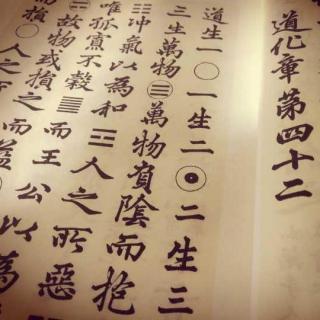 道化章第四十二
道生一〇一生二☉二生三
三生萬物萬物負陰而抱
冲氣以為和人之所惡
唯孤寡不穀而王公以為
故物或損之而益
而損〇人之